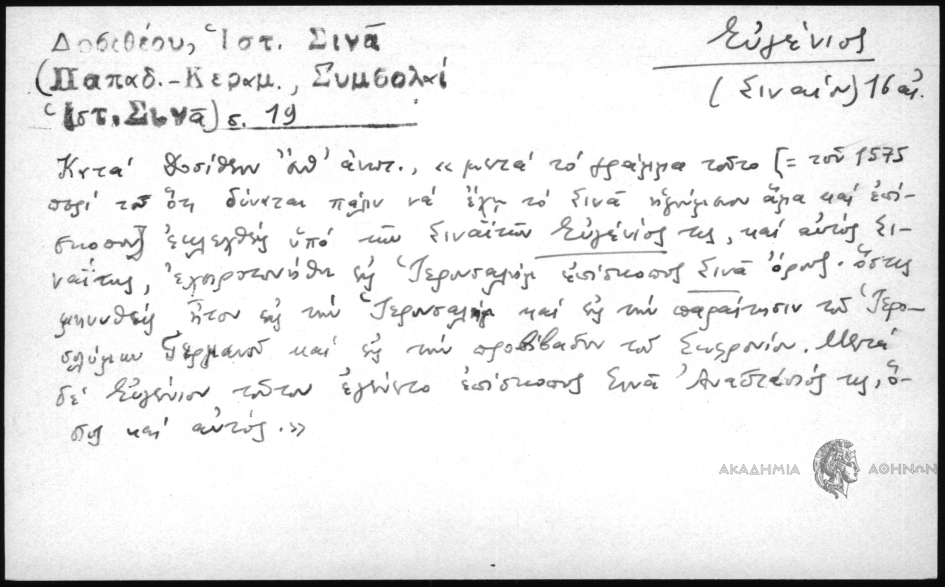 Δοσιθέου, Ἱστ. Σινᾶ
(Παπαδ.-Κεραμ., Συμβολαί
Ἱστ. Σινᾶ) σ. 19
Εὐγένιος
(Σιναΐτ) 16 αἰ.
Κατά Δοσίθεον ἔνθ' ἀνωτ., « μετά τό γράμμα τοῦτο [= τοῦ 1575
περί τοῦ ὅτι δύναται πάλιν νά ἔχῃ τό Σινᾶ ἡγούμενον ἅμα καί ἐπί-
σκοπον] ἐκλεχθείς ὑπό τῶν Σιναϊτῶν Εὐγένιός τις, καί αὐτός Σι-
ναΐτης, ἐχειροτονήθη εἰς Ἱερουσαλήμ ἐπίσκοπος Σινᾶ ὄρους· ὅστις
μηνυθείς ἦτον εἰς τήν Ἱερουσαλήμ καί εἰς τήν παραίτησιν τοῦ Ἱερο-
σολύμων Γερμανοῦ καί εἰς τήν προβίβασιν τοῦ Σωφρονίου. Μετά
δέ Εὐγένιον τοῦτον ἐγένετο ἐπίσκοπος Σινᾶ Ἀναστάσιός τις, ὅ-
πως καί αὐτός.»
ΑΚΑΔΗΜΙΑ ΑΘΗΝΩΝ